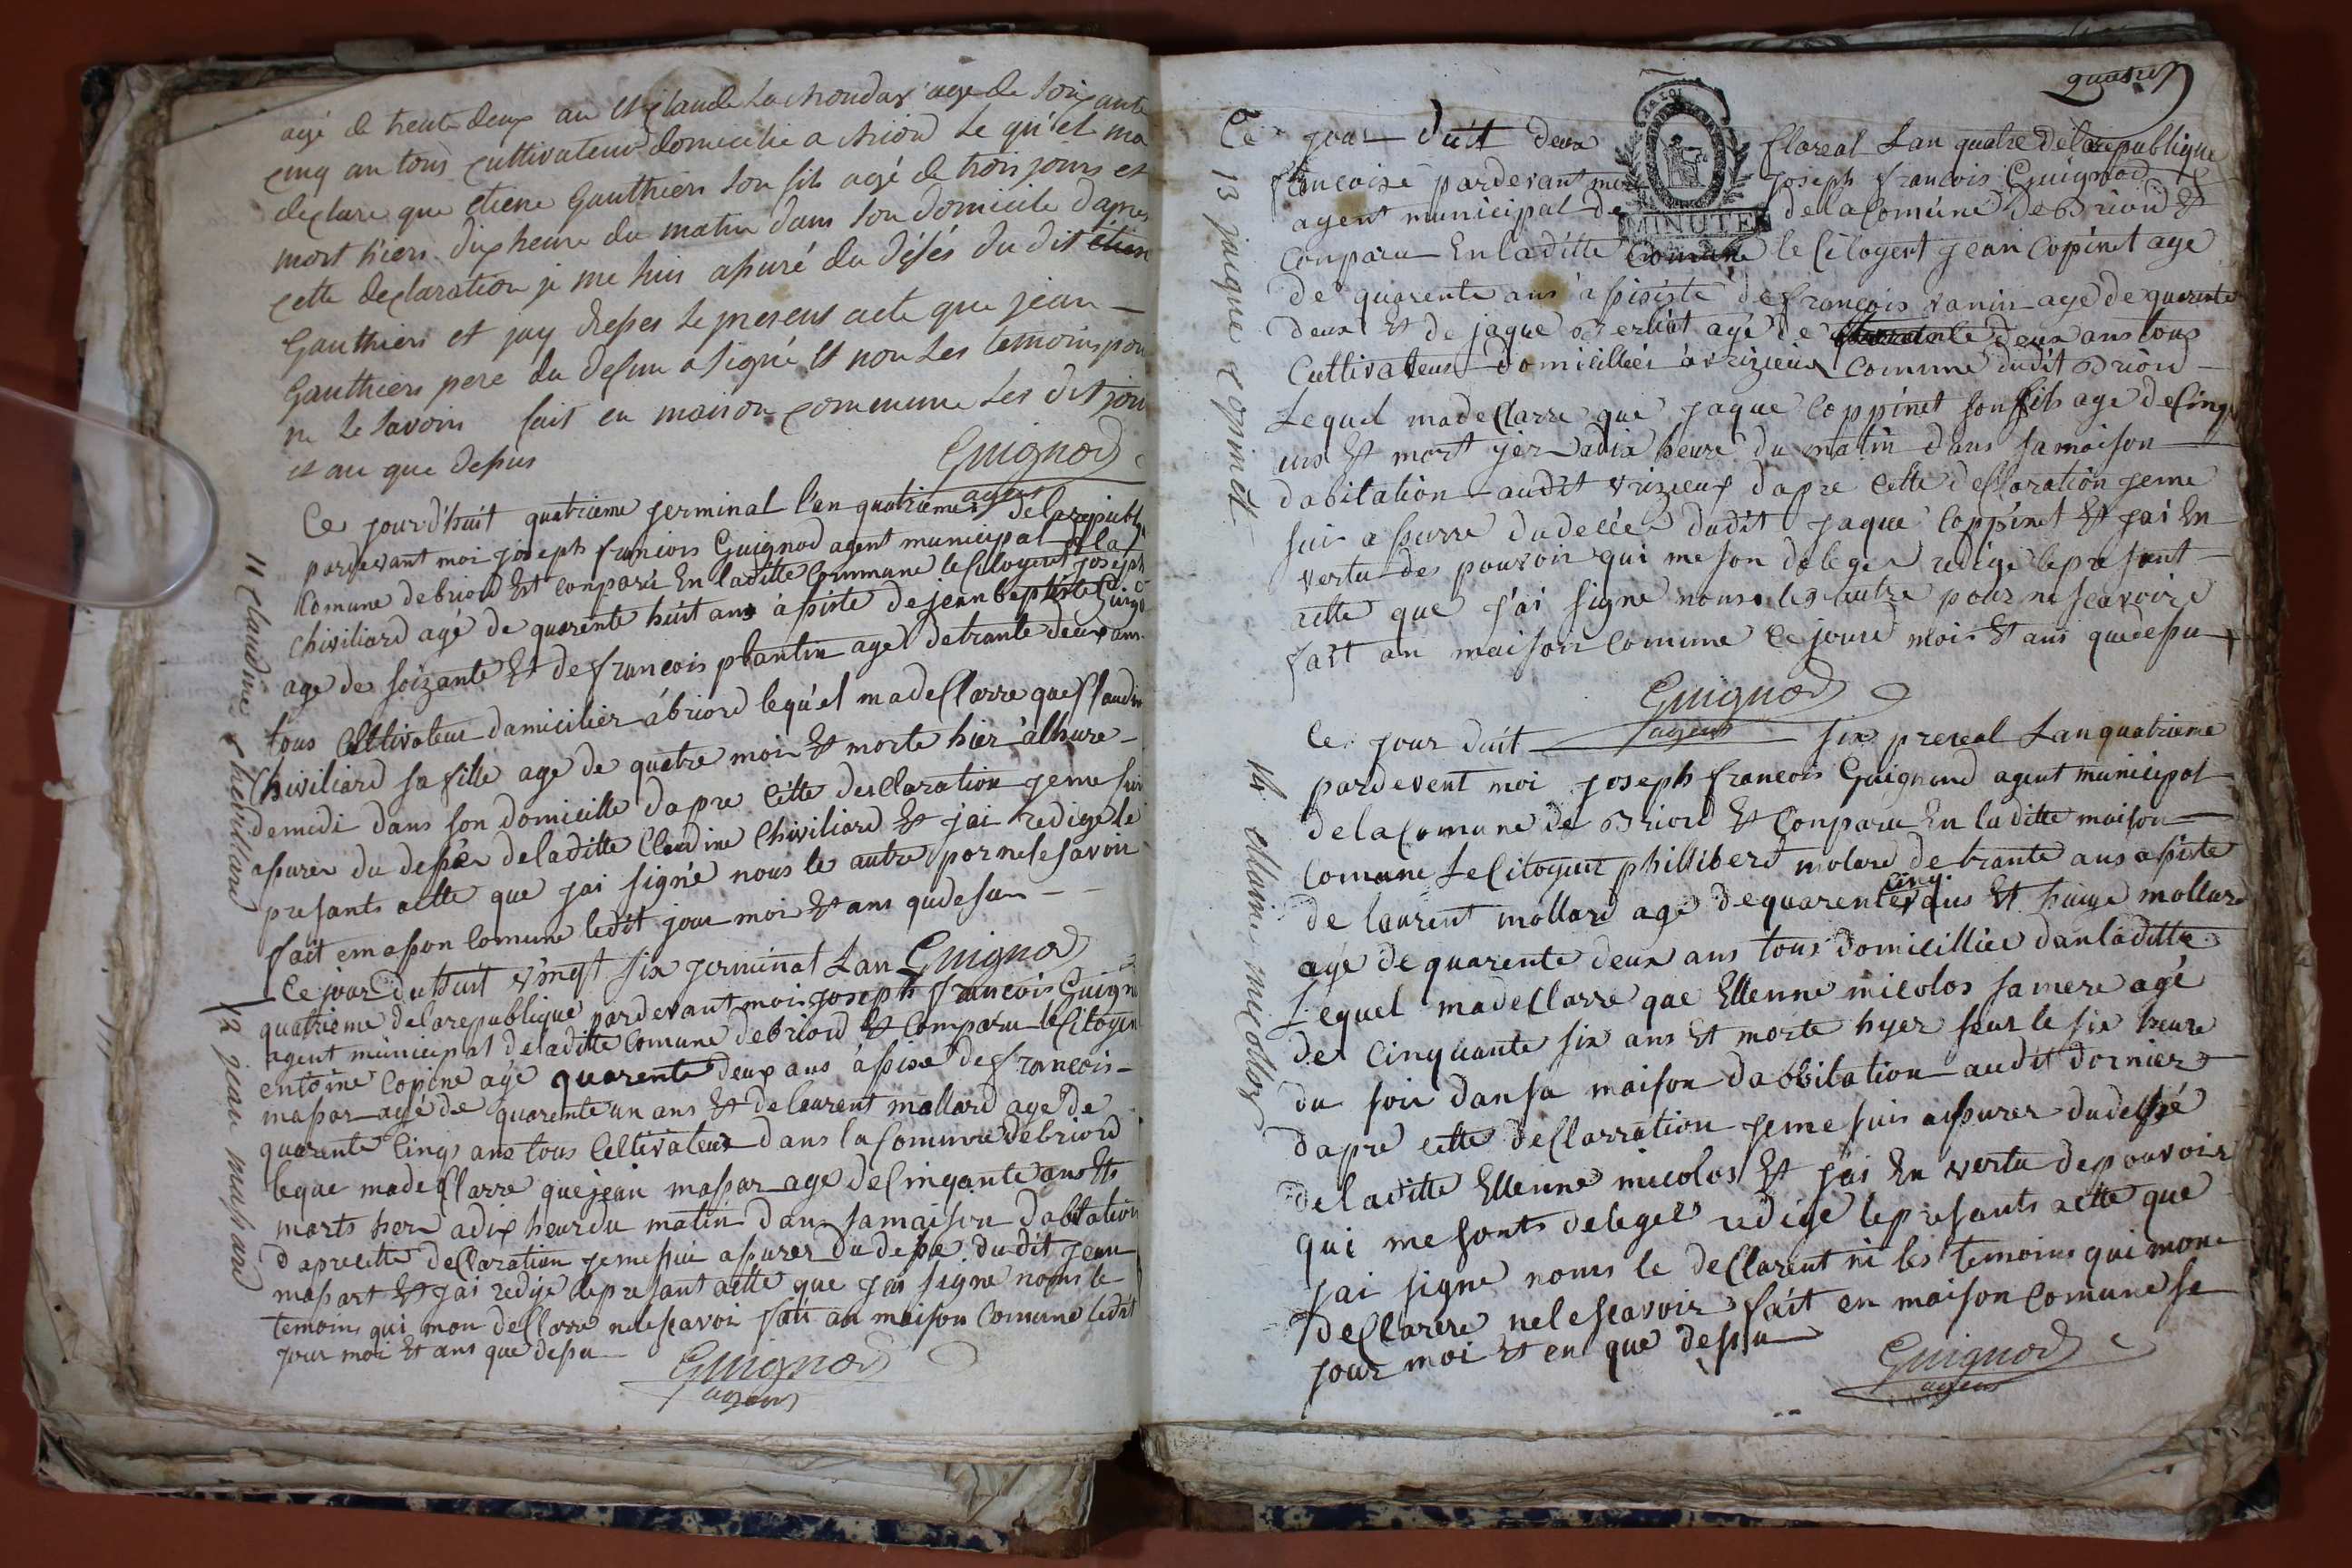 agé de trente deux an et claude La chondar agé de soixante
cinq an tous cultivateur domecilie a Briord le qu'el ma
declare que etiene Gauthiers son fils agé de trois jours et
mort hiers dix heure du matin dans son domicile dapres
cette declaration je me suis assuré du déses du dit etiene
Gauthiers et jay dressés le present acte que jean
Gauthiers pere du defun a signé et non les temoins pour
ne le savoir fait en maison commune les dit jour
et an que desus
Guignod
agent
Ce jourd'huit quatrieme germinal l'an quatrieme de la republi
pardevant moi joseph francois Guignod agent municipal de la
Comune de briord Est conparu En laditte Commune le Citoyent joseph
Chiviliard agé de quarente huit ans à siste de jean baptiste
age de soizante Et de francois plantin agé de trante deux ans
tous Cultivateur domicilier á briord lequ'el ma deClarre que Claudin
Chiviliard sa fille age de quatre moi Et morte hier à lhure
demidi dans son domicille dapre Cette desClaration je me sui
asurer du desée de laditte Claudine Chiviliard Et j'ai redigé le
presants actte que jai signé nous le autre por ne le savoir
fait em ason Comune ledit jour moi Et ans qudesu
11 claudine chevillard
Guignod
Ce jour duhuit vingt six germinal Lan
quatrieme de la republique pardevant moi joseph francois Guign
agent municipal de laditte Comune de briord Et Comparu le Citoyen
entoine Copine agé quarente deux ans à sisté de francois
masar agé de quarente un ans Et de laurent mallard age de
quarente Cinq ans tous Celtivateur dans la Commune de briord
leque ma deClarre que jean masar age de Cinqante ans Et
morts her a dix heur du matin dans sa maison dabitation
d apre cette deClaration je me sui asurer du desée du dit jean
masart Et jai redige le presant actte que jai signe nous le
temoins qui mon deClarre ne le scavoi fait an maison Comune ledit
jour moi Et ans que desu
12 jean massard
Guignod
agent
quatre
Ce jour duit deux floreal Lan quatre de la republique
francoise pardevant moi joseph francois Guignod
agent municipal de de la Comune de Briord Et
MINUTE
Conparu En laditte Comune le Citoyent jean Copinet age
de quarente ans a sisiste de francois vanin agé de quarente
deux Et de jaque Berliat agé de deux ans tous
Cultivateur domicilliéé a vrizieux Comune dudit Briord
Lequel ma deClarre que jaque Coppinet son fils age de Cinq
ans Et mort yer a dix heure du matin dans sa maison
dabitation audit vrizieux dapre Cette deClaration je me
sui assurre du decée dudit jaque Coppinet Et jai En
vertu des pouvoir qui me son deleger redige le presant
actte que j'ai signe nous les autre pour ne scavoire
fait an maison Comune Ce jourd moi Et ans que desu
13 jacque copinet
Guignod
agent
Ce jour duit six prereal Lan quatrieme
pardevent moi joseph francois Guignod agent municipal
de la Comune de Briord Et Conparu En laditte maison
Comune Le Citoyent phillibert molard de trante ans asiste
de laurent mollard age de quarente cinq ans Et huige mollard
agé de quarente deux ans tous domicilliée dan laditte
Lequel ma deClarre que Ellenne micolos sa mere agé
de Cinquante six ans Et morte hyer seur le six heure
du soir dan sa maison dabbitation audit dornier
dapre cette deClarration je me suis assurer du dessé
de laditte Ellenne micolos Et j'ai En vertu de pouvoir
qui me sonts deleger redige le presants actte que
jai signe nous le deClarent ni les temoins qui mone
deClarere ne le scavoir fait en maison Comune se
jour moi Et en que dessu
14 ellaine micollos
Guignod
agent